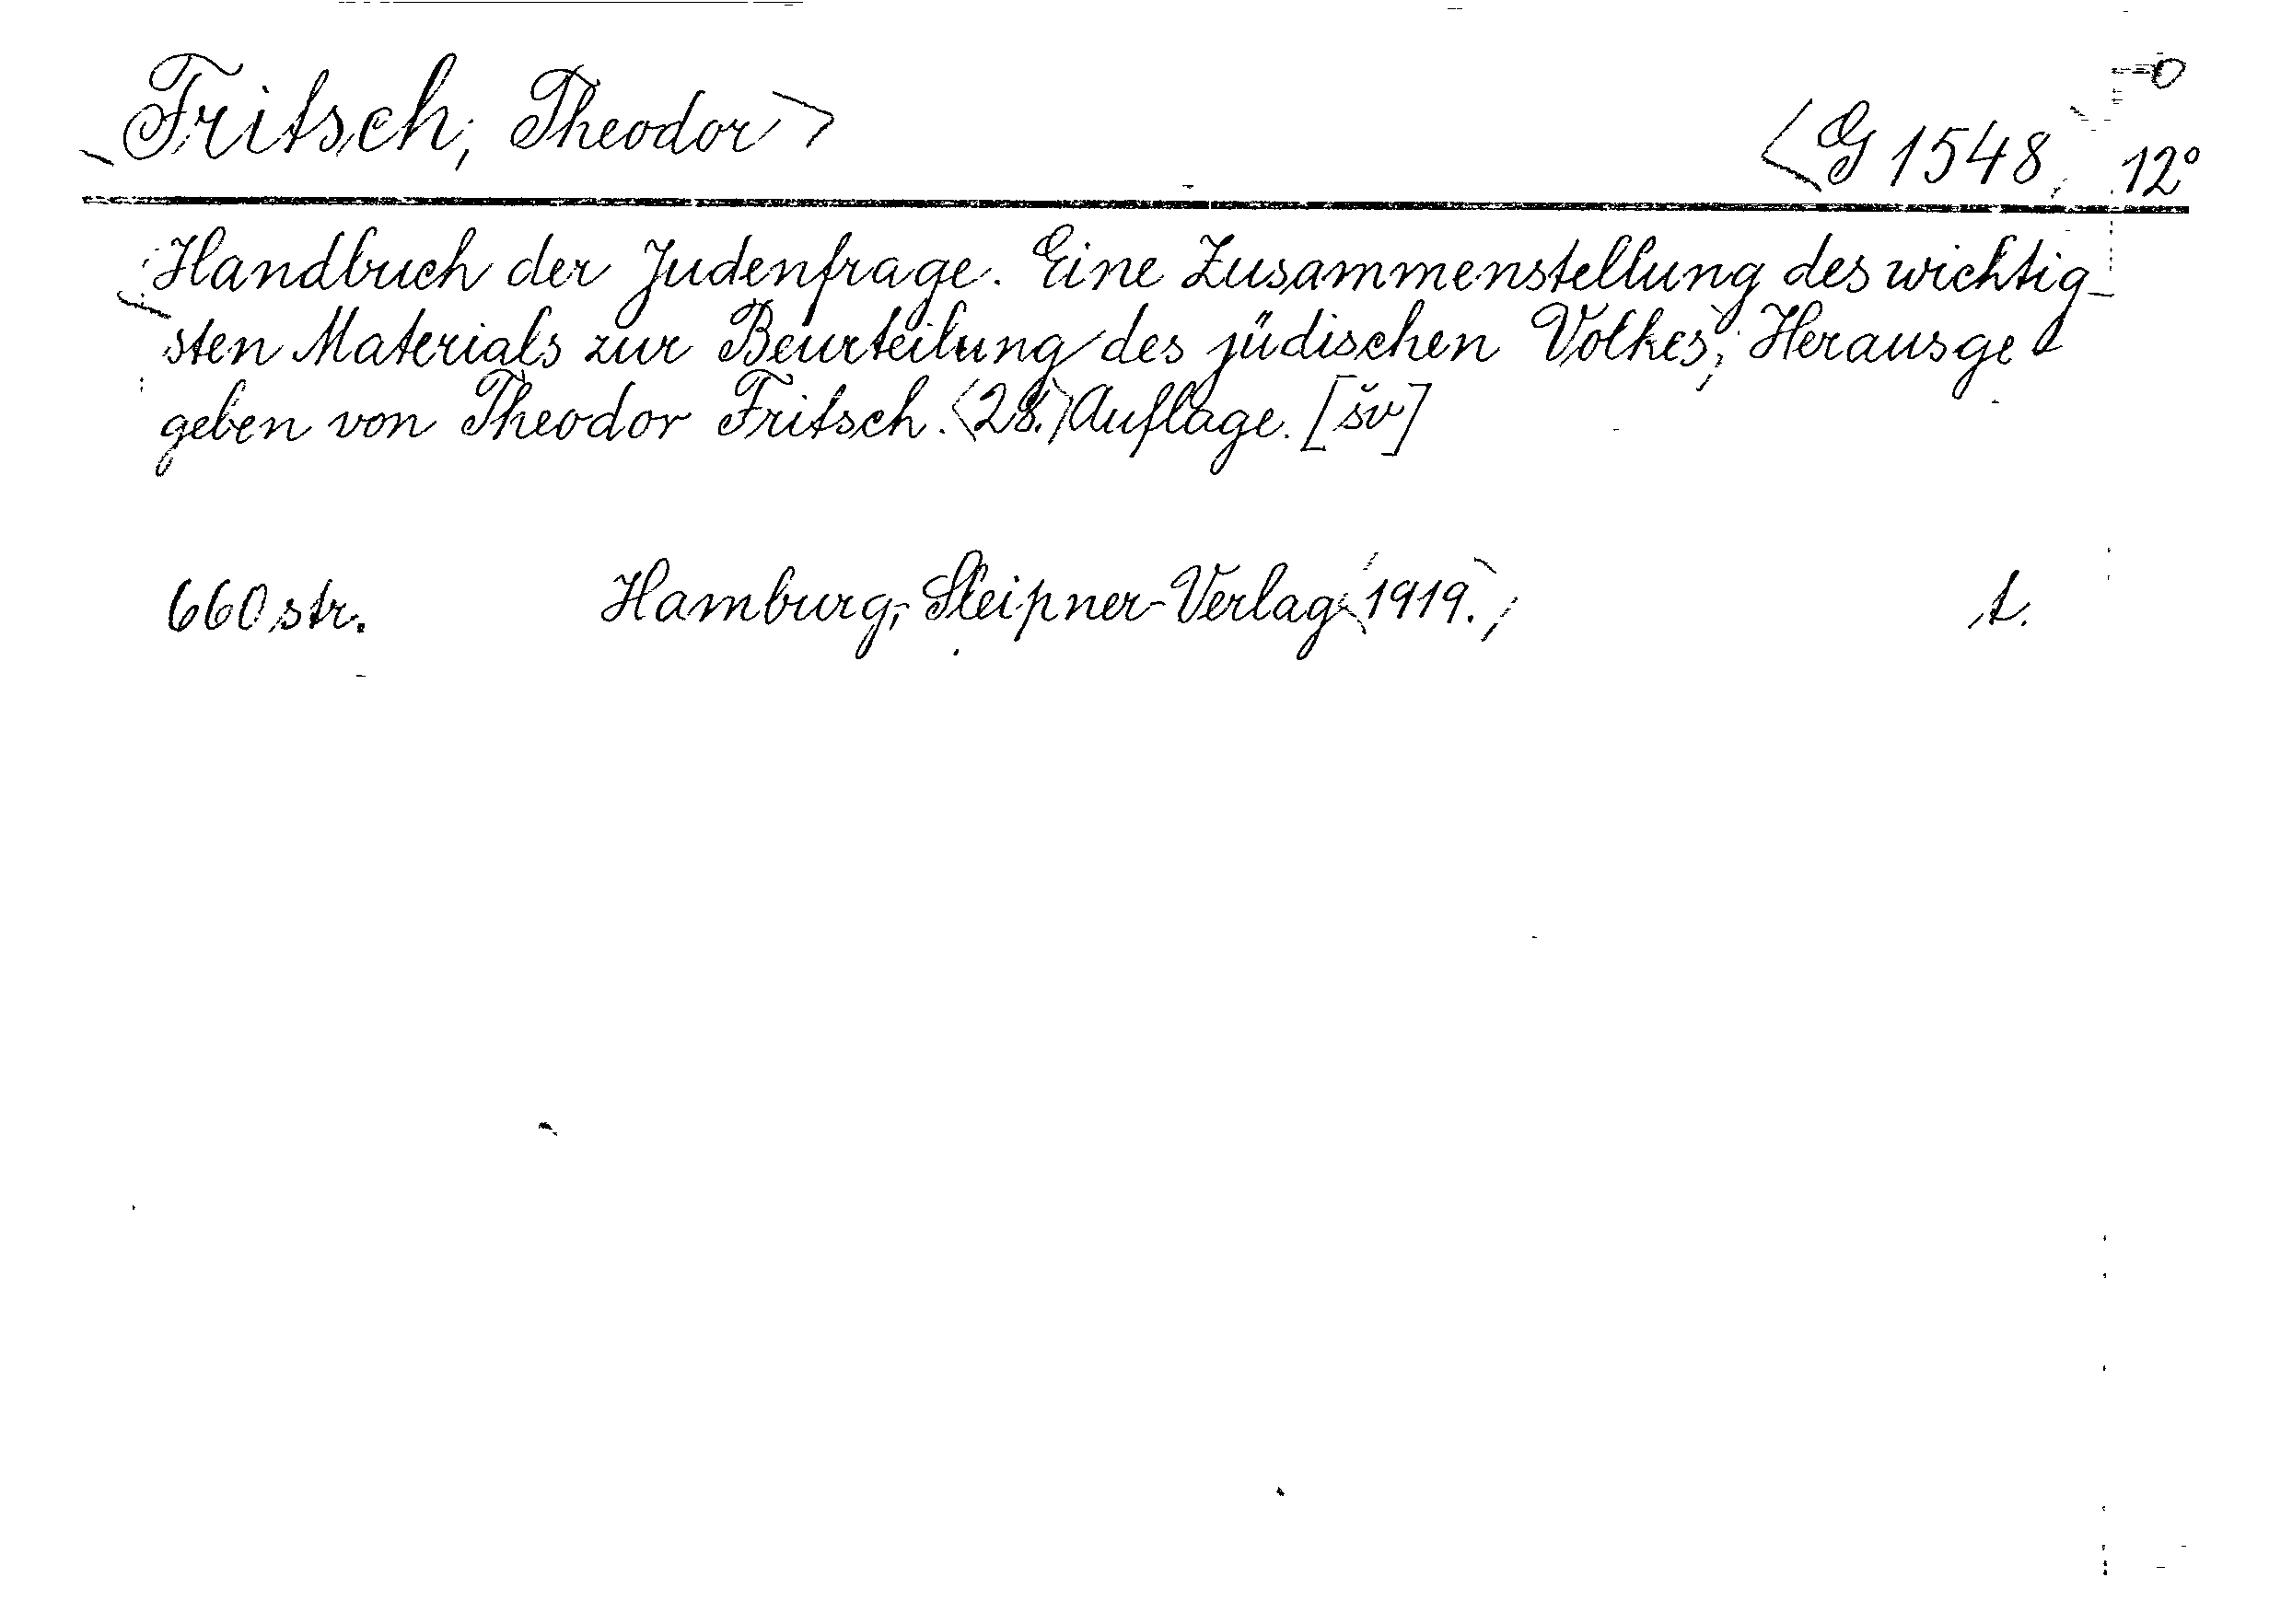 Fritsch, Theodor
G 1548, 12°
Handbuch der Judenfrage. Eine Zusammenstellung des wichtig-
sten Materials zur Beurteilung des jüdischen Volkes, Herausge
geben von Theodor Fritsch. 28. Auflage. [šv]
660 str. Hamburg, Sleipner-Verlag 1919. t.